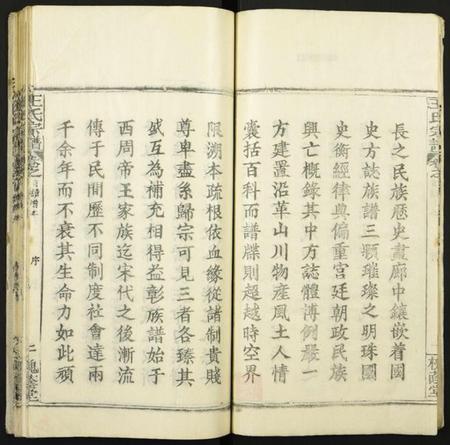 長之民族歷史畫廊中鑲嵌着國
史方誌族譜三顆璀璨之明珠國
史衡經律典偏重宮廷朝政民族
興亡概錄其中方誌體溥例嚴一
方建置沿革山川物產風土人情
囊括百科而譜牒則超越時空界
限溯本疏根依血緣從諸制貴賤
尊卑盡系歸宗可見三者各臻其
盛互為補充相得益彰族譜始于
西周帝王家族迄宋代之後漸流
傳于民間歷不同制度社會達兩
千余年而不衰其生命力如此頑
王氏宗譜
序
二
槐蔭堂
王氏宗譜
槐蔭堂